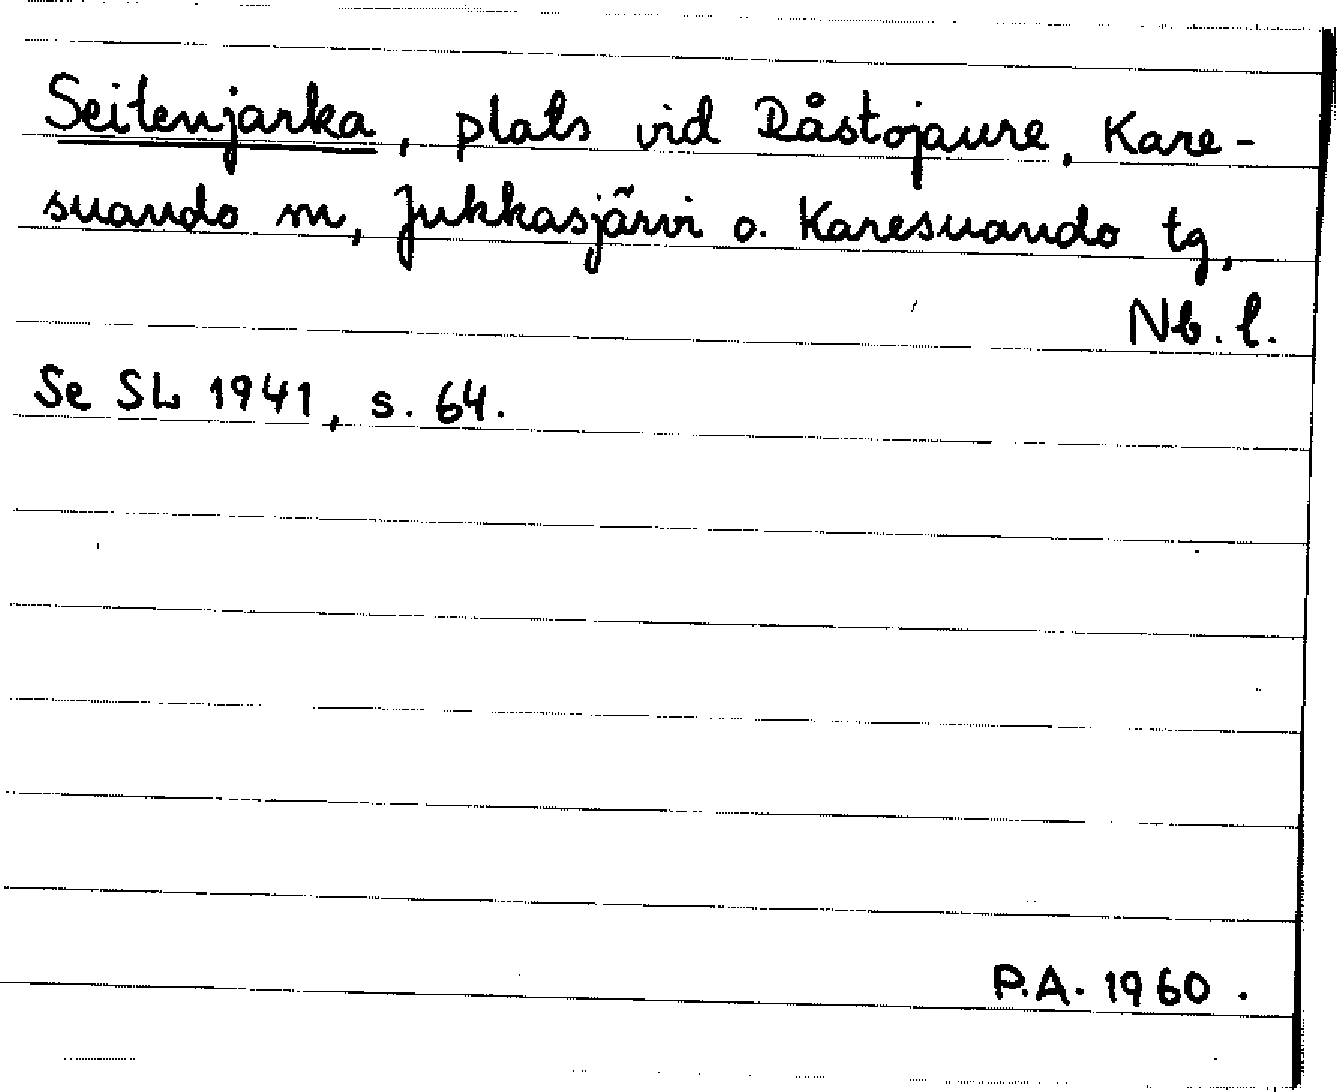 Seitenjarka, plats vid Råstojaure, Kare-
suando m, Jukkasjärvi o. Karesuando tg,
Nb. l.
Se SL 1941, s. 64.
P.A. 1960.